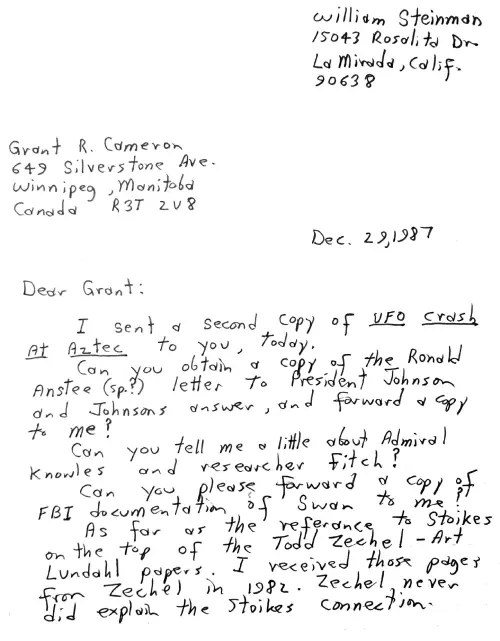 William Steinman
15043 Rosalita Dr.
La Mirada, Calif.
90638
Grant R. Cameron
649 Silverstone Ave.
Winnipeg, Manitoba
Canada R3T 2V8
Dec. 29, 1987
Dear Grant:
I sent a second copy of UFO Crash
At Aztec to you, today.
Can you obtain a copy of the Ronald
Anstee (sp?) letter to President Johnson
and Johnsons answer, and forward a copy
to me?
Can you tell me a little about Admiral
Knowles and researcher Fitch?
Can you please forward a copy of
FBI documentation of Swan to me?
As far as the referance to Stoikes
on the top of the Todd Zechel - Art
Lundahl papers. I received those pages
from Zechel in 1982. Zechel, never
did explain the Stoikes connection.